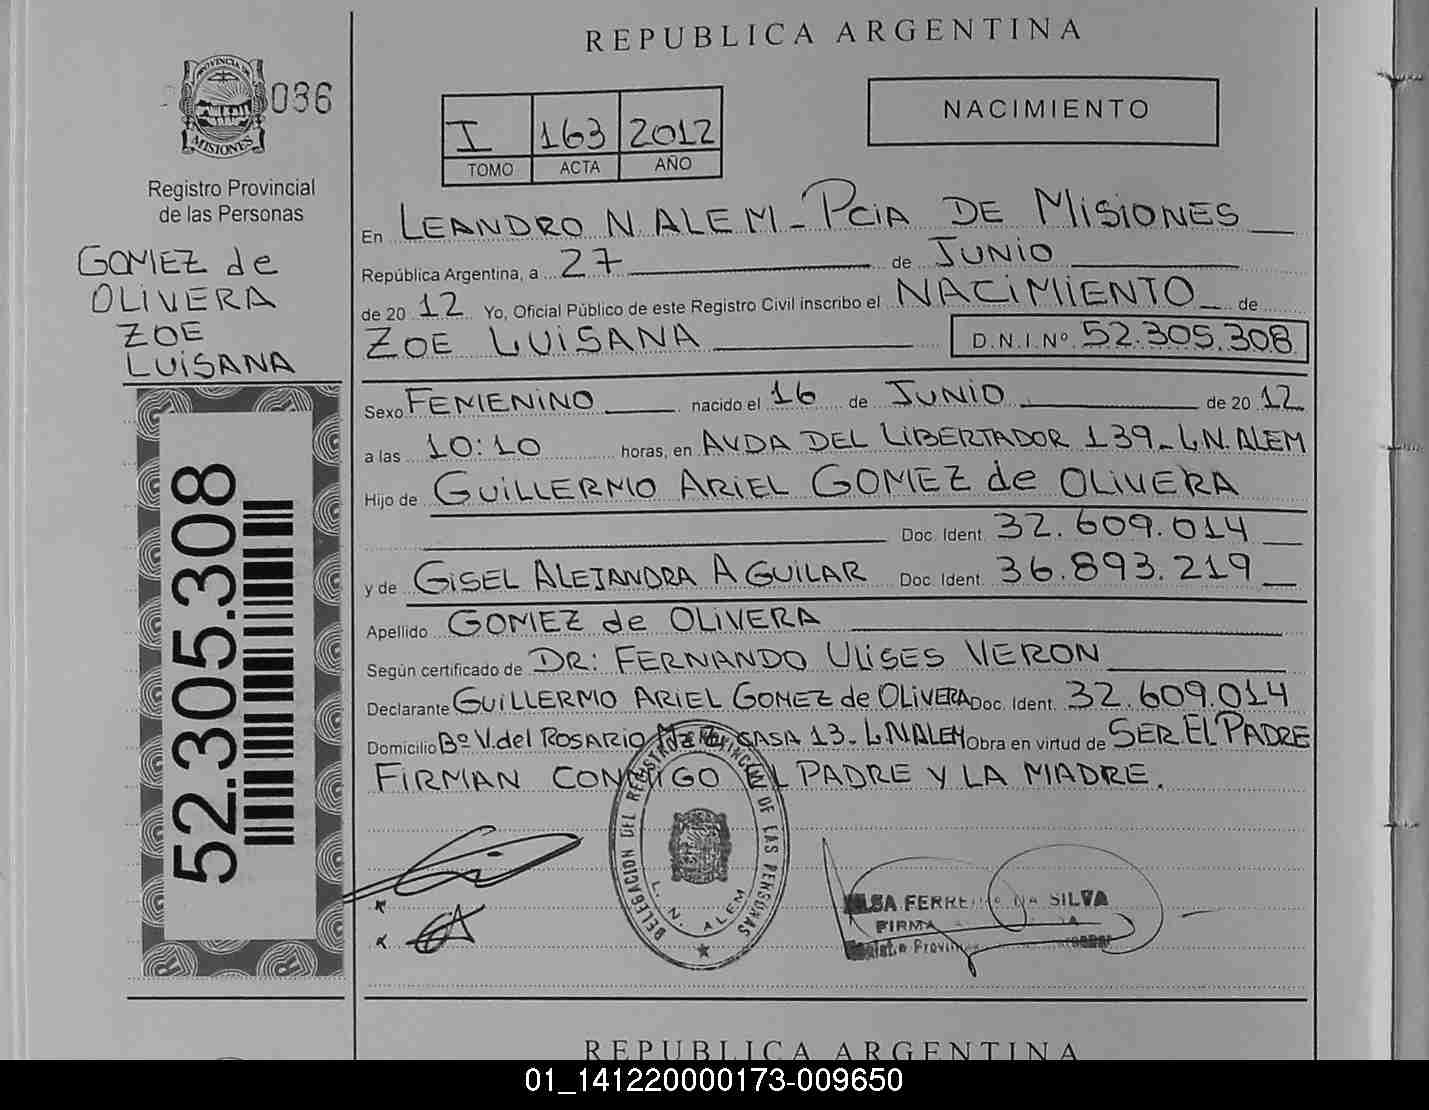 REPUBLICA ARGENTINA
PROVINCIA DE
MISIONES
036
Registro Provincial
de las Personas
GOMEZ de
OLIVERA
ZOE
LUISANA
52.305.308
I 163 2012
TOMO ACTA AÑO
NACIMIENTO
En LEANDRO N ALEM - Pcia DE MISIONES
República Argentina, a 27 de JUNIO
de 2012 Yo, Oficial Público de este Registro Civil inscribo el NACIMIENTO de
ZOE LUISANA D.N.I.Nº 52.305.308
Sexo FEMENINO nacido el 16 de JUNIO de 2012
a las 10:10 horas, en AVDA DEL LIBERTADOR 139 - L.N. ALEM
Hijo de GUILLERMO ARIEL GOMEZ de OLIVERA
Doc. Ident. 32.609.014
y de GISEL ALEJANDRA AGUILAR Doc. Ident. 36.893.219
Apellido GOMEZ de OLIVERA
Según certificado de DR: FERNANDO ULISES VERON
Declarante GUILLERMO ARIEL GOMEZ de OLIVERA Doc. Ident. 32.609.014
Domicilio Bº V. del ROSARIO CASA 13 - L N ALEM Obra en virtud de SER EL PADRE
FIRMAN CONMIGO EL PADRE Y LA MADRE.
DELEGACION DEL REGISTRO PROVINCIAL DE LAS PERSONAS
L. N. ALEM
DA SILVA
FIRMA
REPUBLICA ARGENTINA
01_141220000173-009650